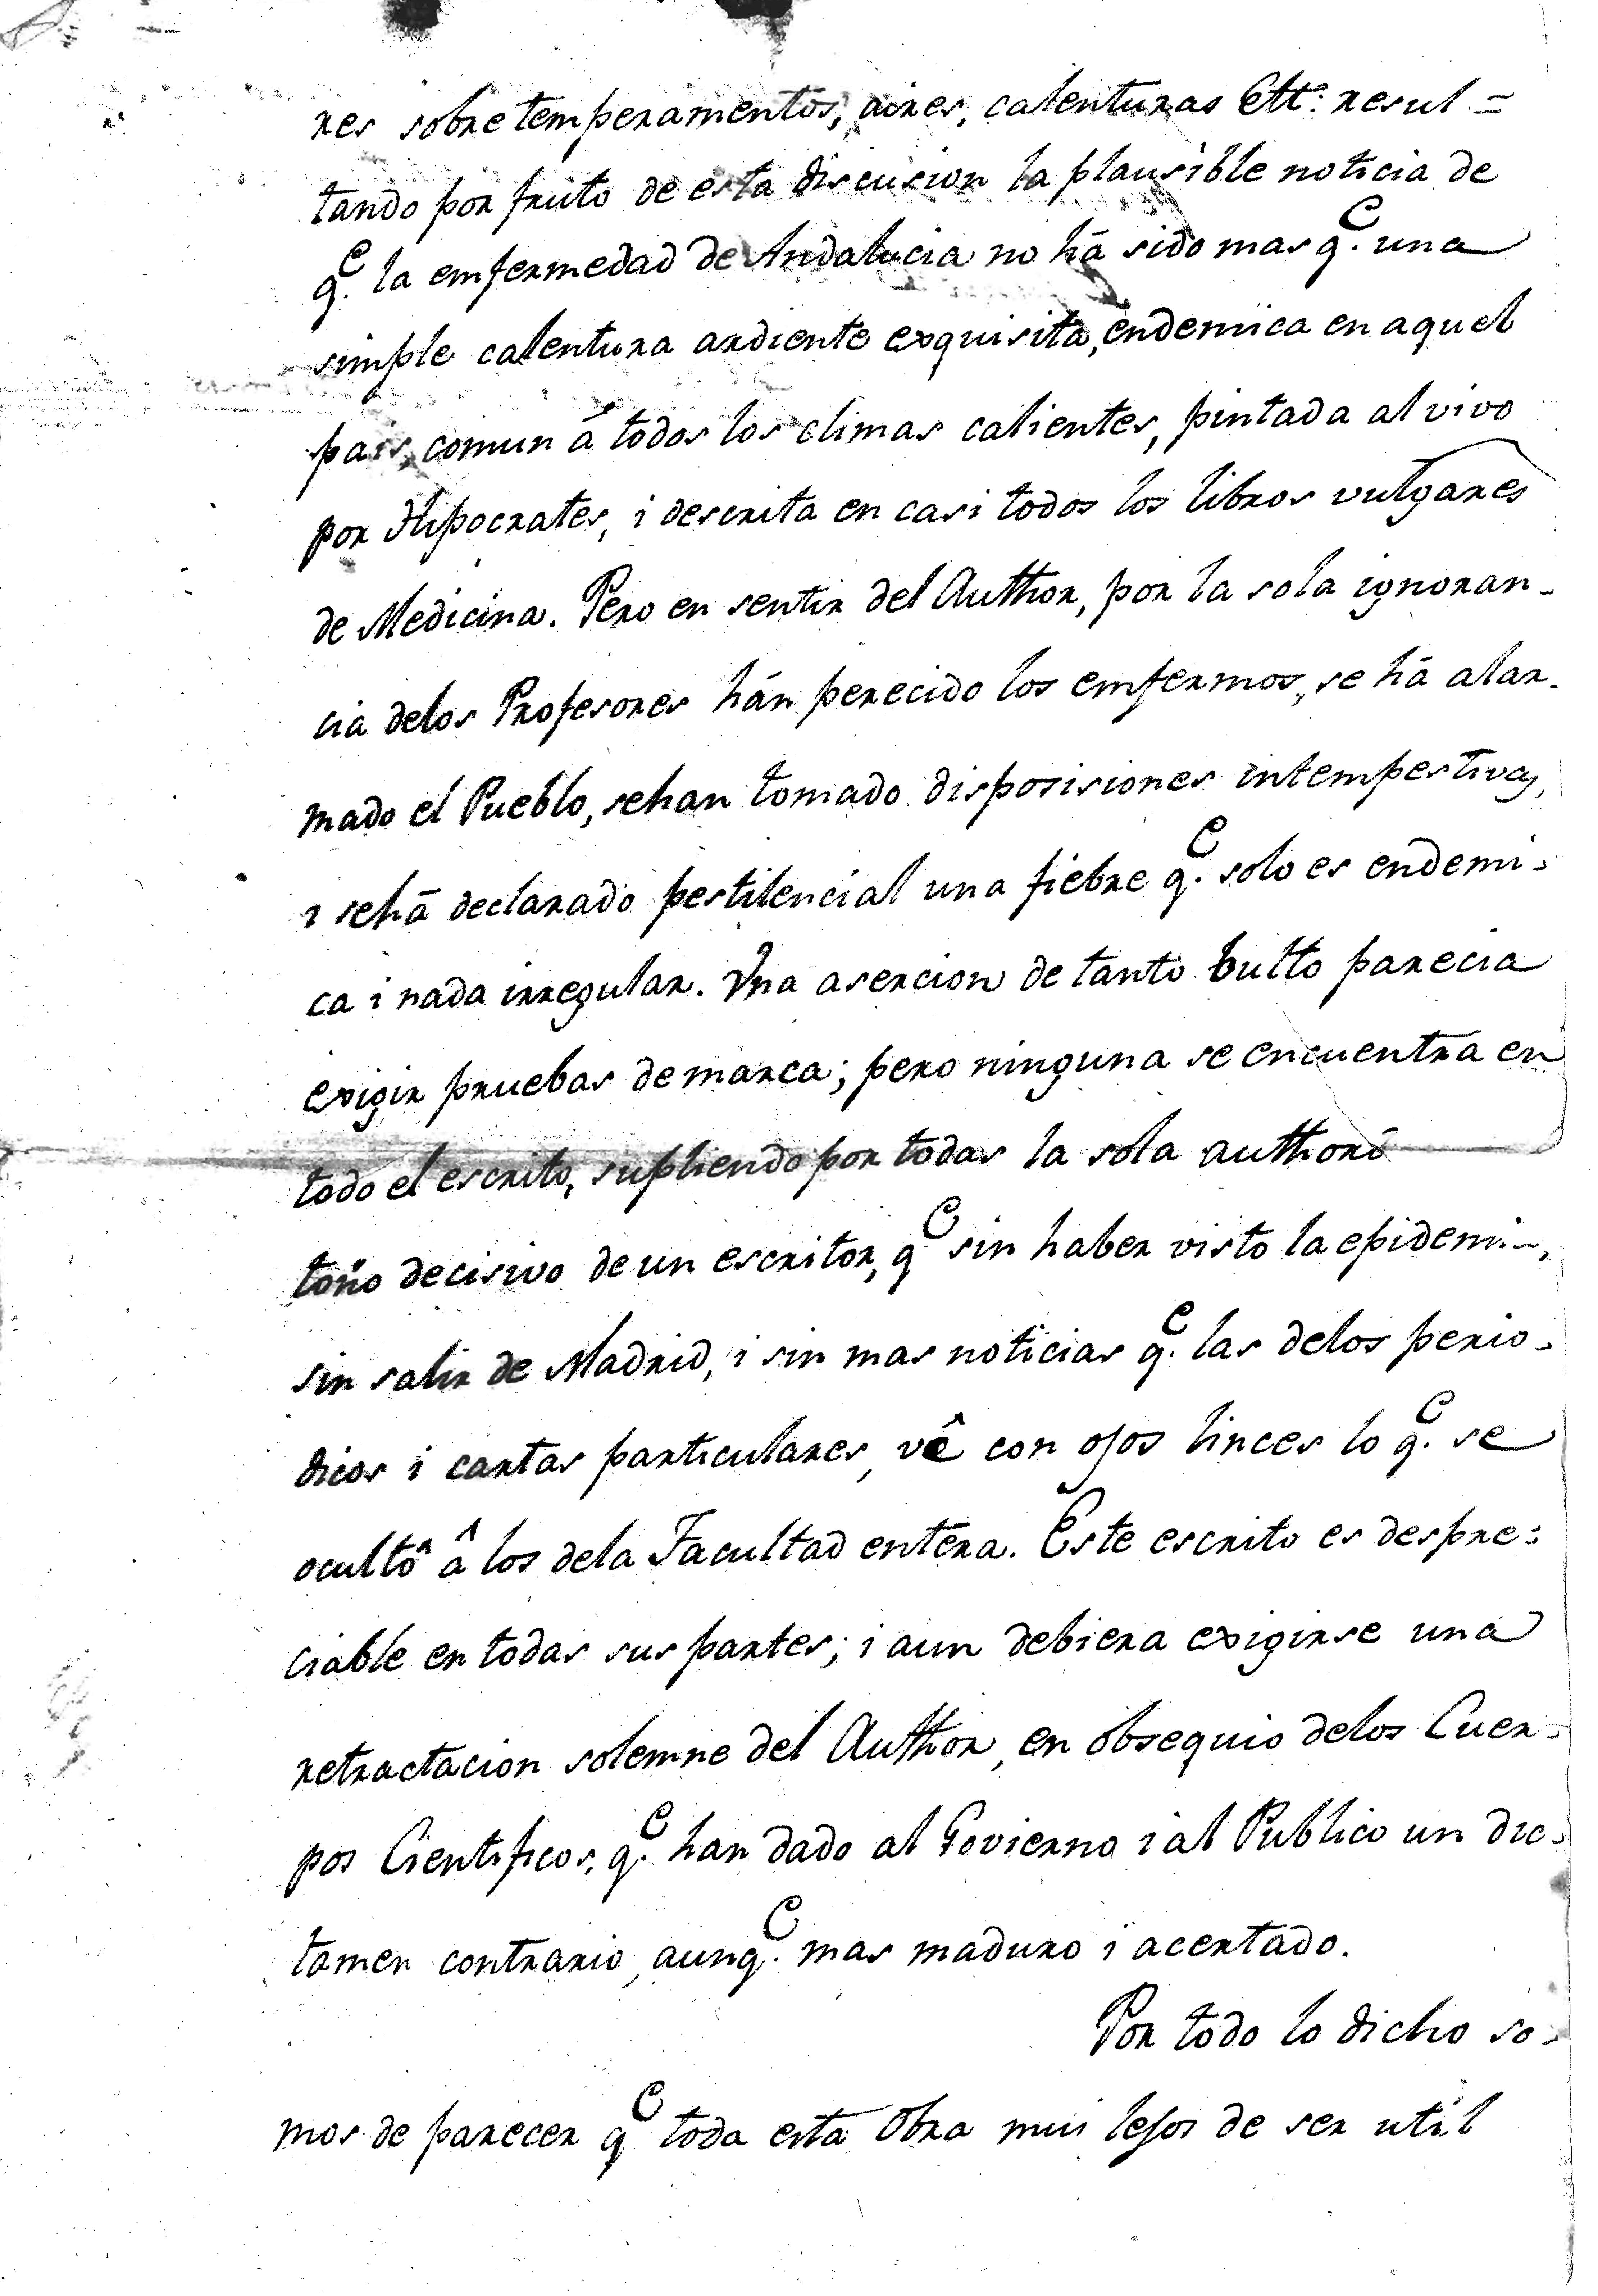 res sobre temperamentos, aires, calenturas Ett.ª resul=
tando por fruto de esta discusion la plausible noticia de
q.e la emfermedad de Andalucia no hã sido mas q.e una
simple calentura ardiente exquisita, endemica en aquel
pais, comun á todos los climas calientes, pintada al vivo
por Hipocrates, i descrita en casi todos los libros vulgares
de Medicina. Pero en sentir del Author, por la sola ignoran-
cia delos Profesores hán perecido los emfermos, se hã alar-
mado el Pueblo, sehan tomado disposisiones intempestivas,
i sehã declarado pestilencial una fiebre q.e solo es endemi-
ca i nada irregular. Una asercion de tanto bulto parecia
exigir pruebas demarca; pero ninguna se encuentra en
todo el escrito, supliendo por todas la sola authori
tono decisivo de un escritor, q.e sin haber visto la epidemia,
sin salir de Madrid, i sin mas noticias q.e las delos perio-
dicos i cartas particulares, vê con ojos linces lo q.e se
ocultô â los dela Facultad entera. Este escrito es despre-
ciable en todas sus partes; i aun debiera exigirse una
retractacion solemne del Author, en obsequio delos Cuer-
pos Cientificos, q.e han dado al Govierno i al Publico un dic-
tamen contrario, aunq.e mas maduro i acertado.
Por todo lo dicho so-
mos de parecer q.e toda esta Obra mui lejos de ser util